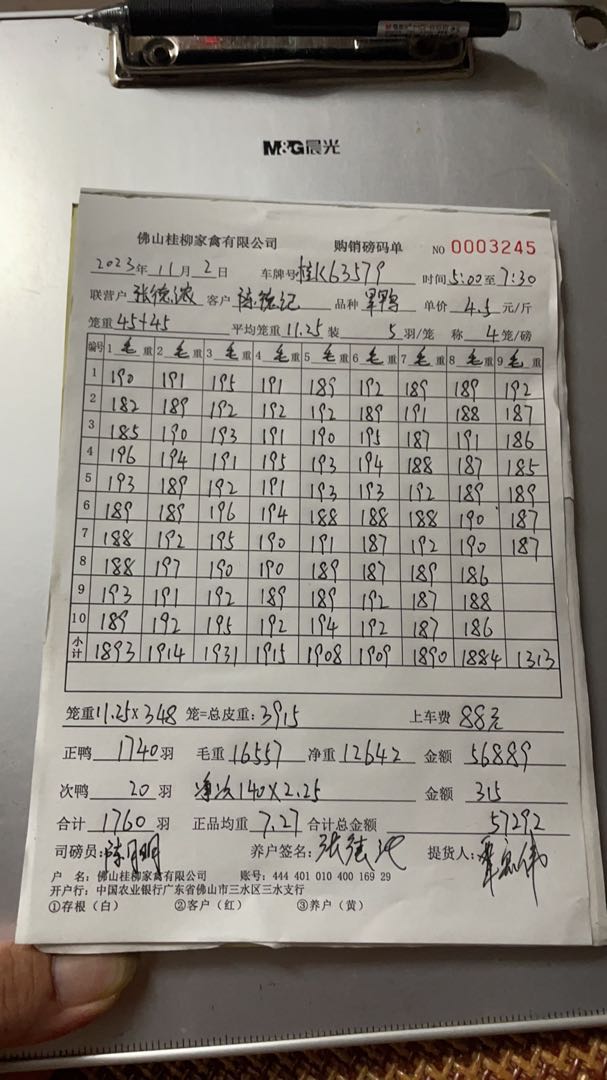 M&G晨光
佛山桂柳家禽有限公司 购销磅码单 NO 0003245
2023年 11月 2日 车牌号 桂K63579 时间 5:00 至 7:30
联营户 张德 客户 陈德记 品种 鸭 单价 4.5 元/斤
笼重 45+45 平均笼重 11.25 装 5 羽/笼 称 4 笼/磅
编号 1 毛重 2 毛重 3 毛重 4 毛重 5 毛重 6 毛重 7 毛重 8 毛重 9 毛重
1 190 191 195 191 189 192 189 189 192
2 182 189 192 192 192 189 191 188 187
3 185 190 193 191 190 195 187 191 186
4 196 194 191 195 193 194 188 187 185
5 193 189 192 191 193 193 192 189 189
6 189 189 196 194 188 188 188 190 187
7 188 192 195 190 191 187 192 190 187
8 188 197 190 190 189 187 189 186
9 193 191 192 189 189 192 187 188
10 189 192 195 192 194 192 187 186
小计 1893 1914 1931 1915 1908 1909 1890 1884 1313
笼重 11.25×348 笼=总皮重: 3915 上车费 88元
正鸭 1740 羽 毛重 16557 净重 12642 金额 56889
次鸭 20 羽 净次140×2.25 金额 315
合计 1760 羽 正品均重 7.27 合计总金额 57292
司磅员: 陈月明 养户签名: 张德 提货人:
户 名: 佛山桂柳家禽有限公司 账号: 444 401 010 400 169 29
开户行: 中国农业银行广东省佛山市三水区三水支行
①存根(白) ②客户(红) ③养户(黄)